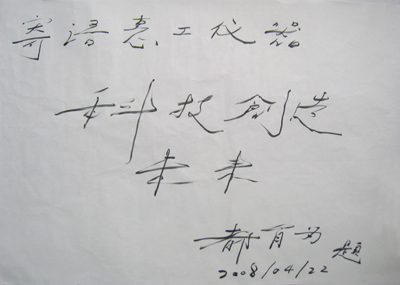 寄语惠工仪器
科技创造
未来
都有为 题
2008/04/22